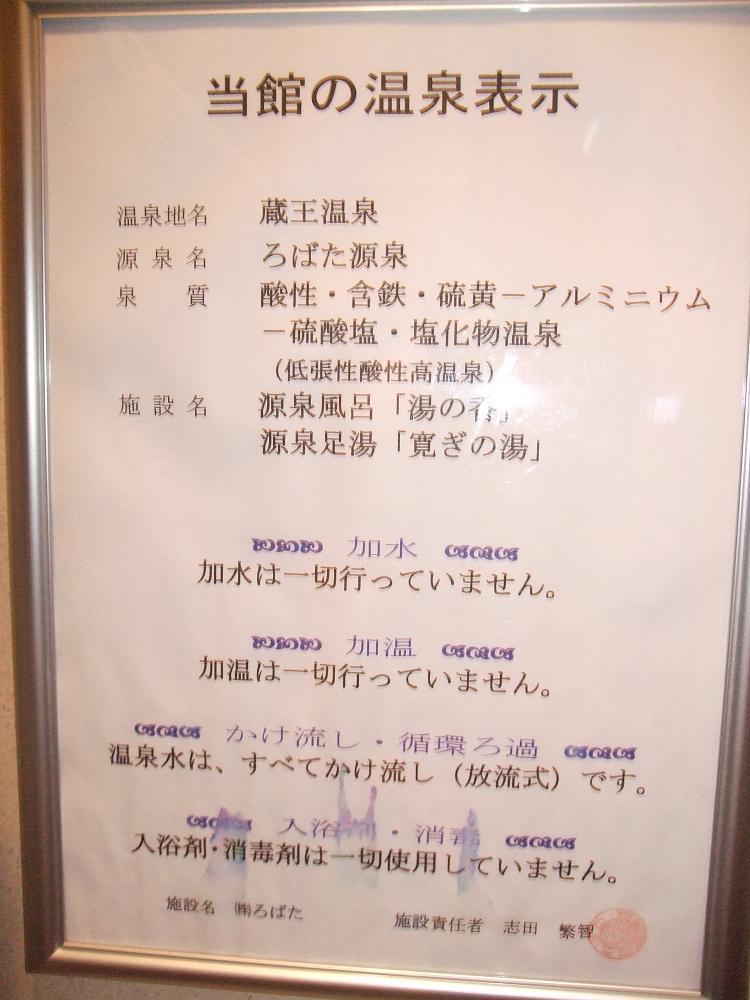 当館の温泉表示
温泉地名 蔵王温泉
源泉名 ろばた源泉
泉質 酸性・含鉄・硫黄－アルミニウム
－硫酸塩・塩化物温泉
（低張性酸性高温泉）
施設名 源泉風呂「湯の香」
源泉足湯「寛ぎの湯」
加水
加水は一切行っていません。
加温
加温は一切行っていません。
かけ流し・循環ろ過
温泉水は、すべてかけ流し（放流式）です。
入浴剤・消毒
入浴剤・消毒剤は一切使用していません。
施設名 ㈱ろばた 施設責任者 志田 繁智